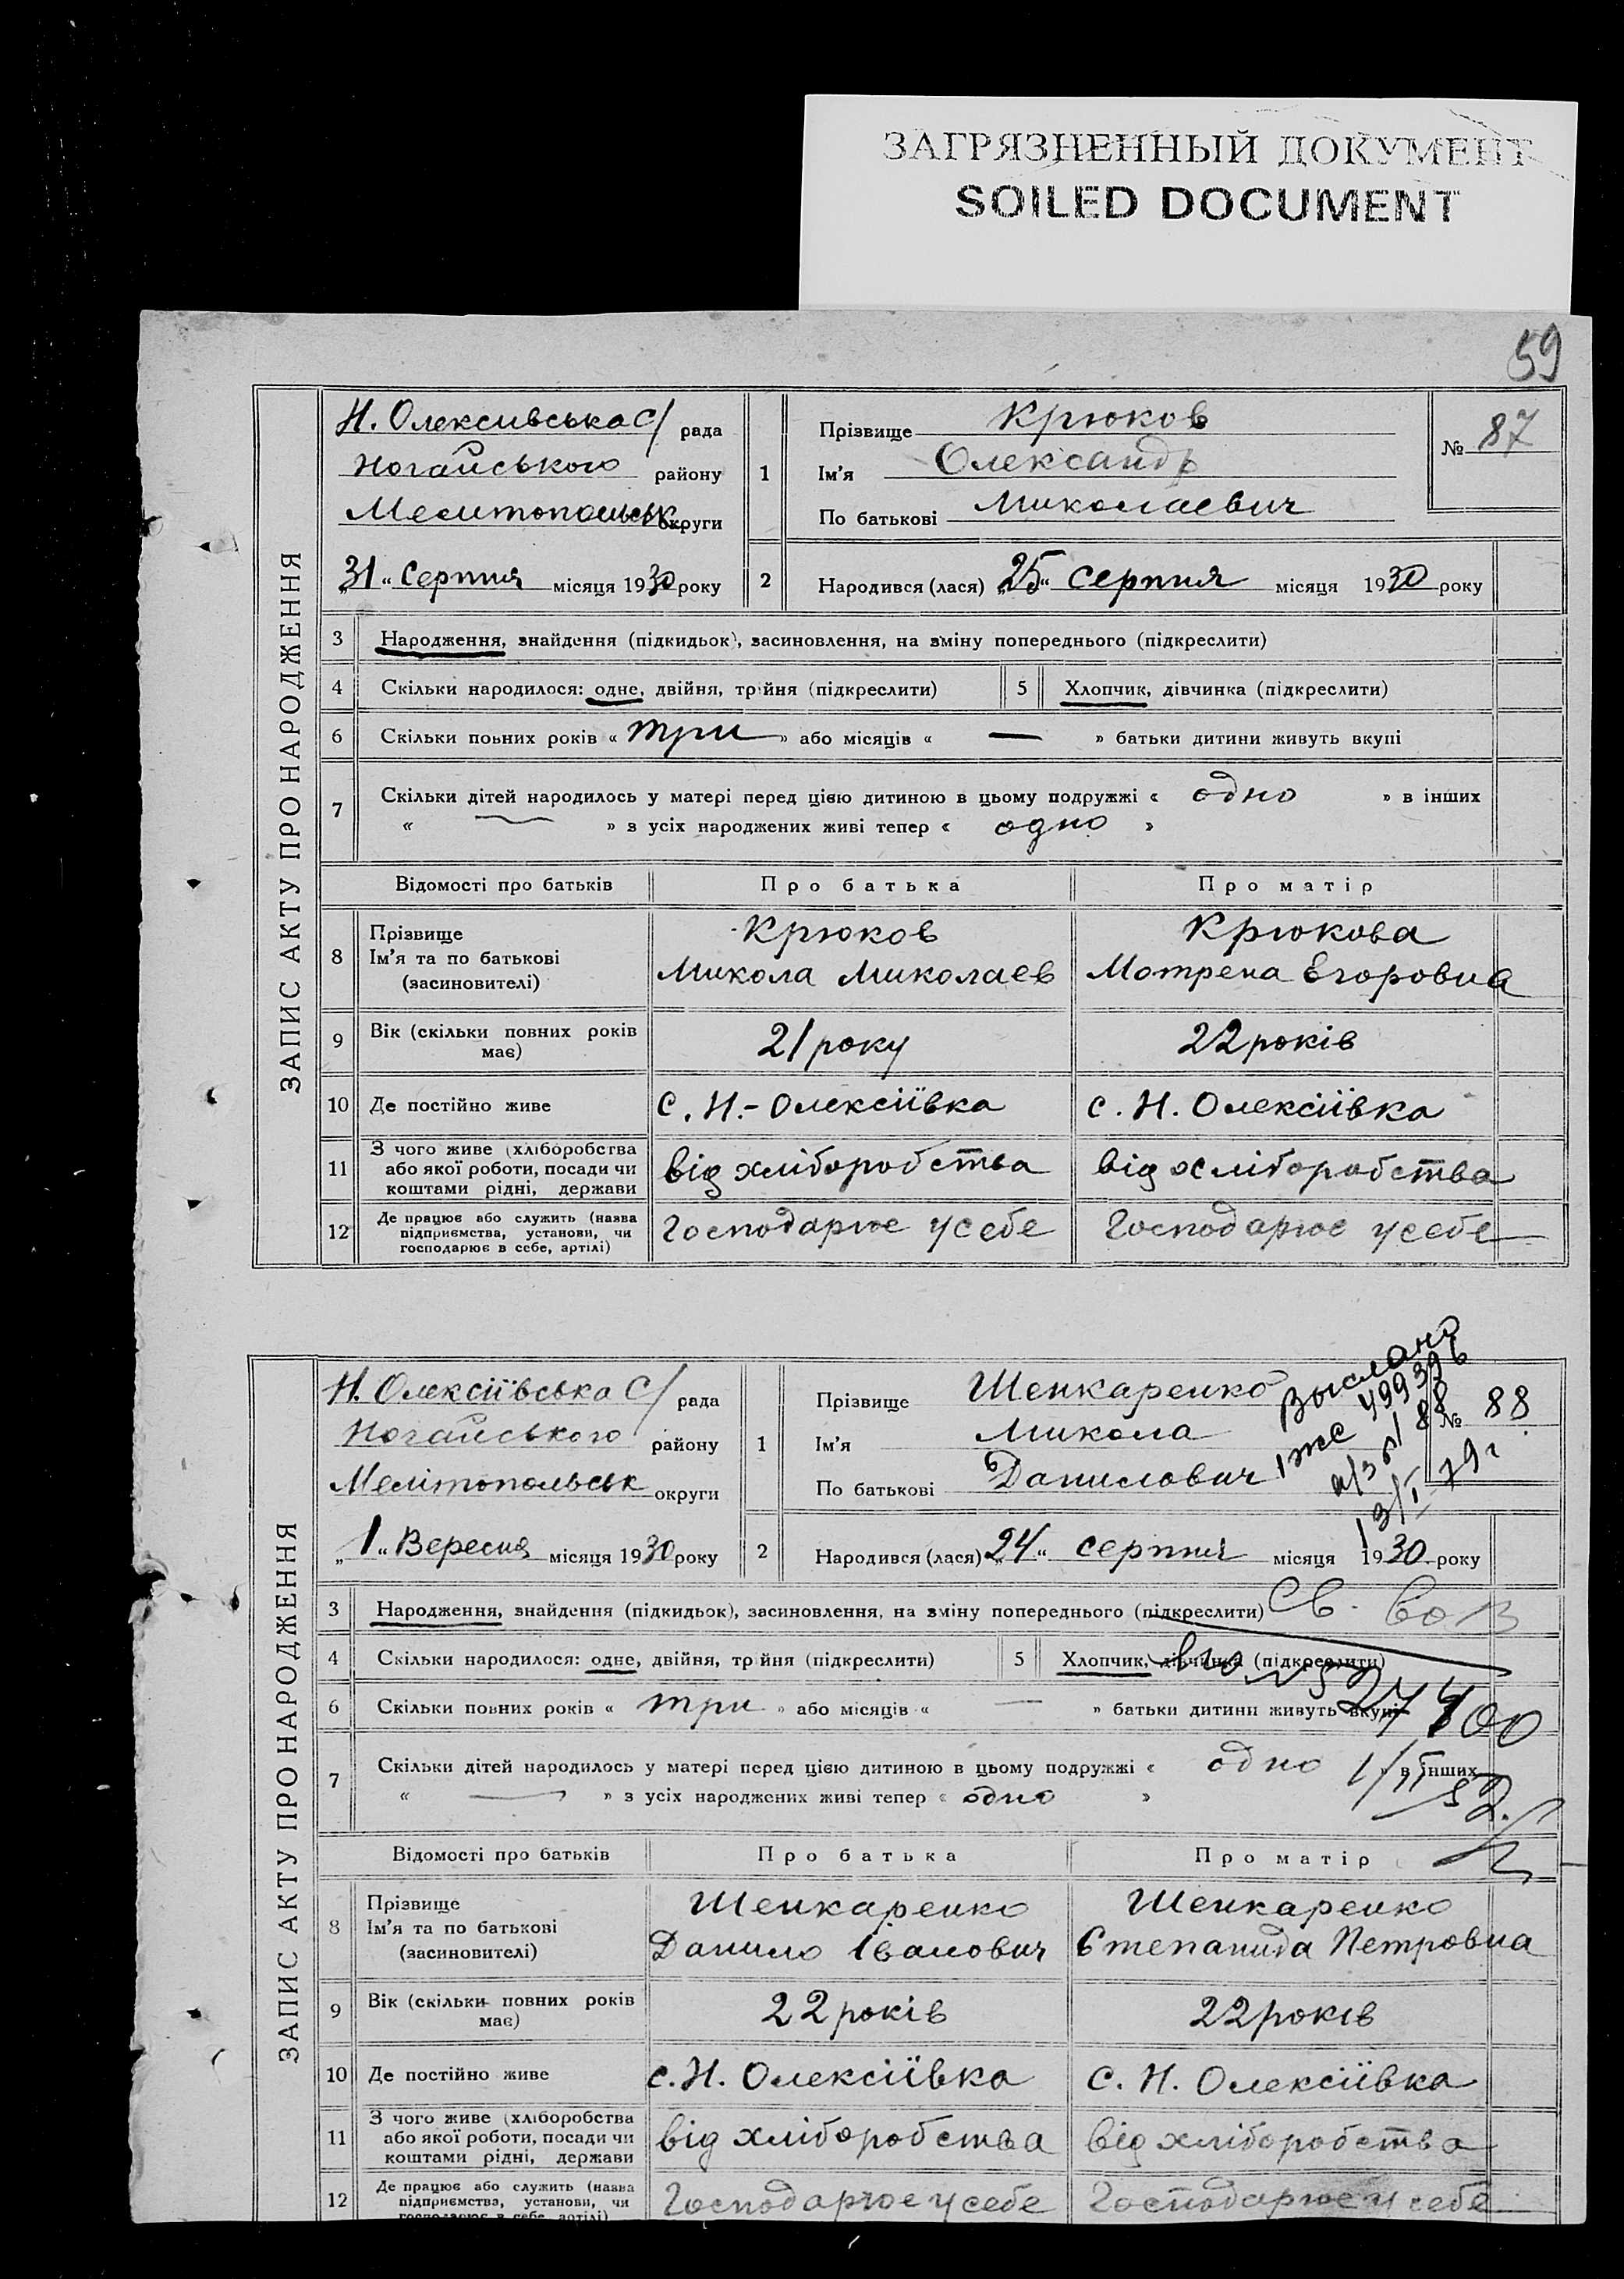 ЗАГРЯЗНЕННЫЙ ДОКУМЕНТ
SOILED DOCUMENT
59
ЗАПИС АКТУ ПРО НАРОДЖЕННЯ
Н. Олексивська С/ рада
Ногайського району
Мелитопольськ округи
„31“ Серпня місяця 1930 року
1 Прізвище Крюков
Ім'я Олександр
По батькові Миколаевич
№ 87
2 Народився (лася) „25“ серпня місяця 1930 року
3 Народження, знайдення (підкидьок), засиновлення, на зміну попереднього (підкреслити)
4 Скільки народилося: одне, двійня, трійня (підкреслити) 5 Хлопчик, дівчинка (підкреслити)
6 Скільки повних років « три » або місяців « — » батьки дитини живуть вкупі
7 Скільки дітей народилось у матері перед цією дитиною в цьому подружжі « одно » в інших
« — » з усіх народжених живі тепер « одно »
Відомості про батьків Про батька Про матір
8 Прізвище Ім'я та по батькові (засиновителі)
Крюков
Микола Миколаев
Крюкова
Мотрена Егоровна
9 Вік (скільки повних років має) 21 року 22 років
10 Де постійно живе с. Н.-Олексіївка с. Н. Олексіївка
11 З чого живе (хліборобства або якої роботи, посади чи коштами рідні, держави від хліборобства від хліборобства
12 Де працює або служить (назва підприємства, установи, чи господарює в себе, артілі) Господарює у себе Господарює у себе
ЗАПИС АКТУ ПРО НАРОДЖЕННЯ
Н. Олексіївська С/ рада
Ногайського району
Мелітопольськ округи
„1“ Вересня місяця 1930 року
1 Прізвище Шенкаренко
Ім'я Микола
По батькові Данилович
№ 88
2 Народився (лася) „24“ серпня місяця 1930 року
3 Народження, знайдення (підкидьок), засиновлення, на зміну попереднього (підкреслити)
4 Скільки народилося: одне, двійня, трійня (підкреслити) 5 Хлопчик, дівчинка (підкреслити)
6 Скільки повних років « три » або місяців « — » батьки дитини живуть вкупі
7 Скільки дітей народилось у матері перед цією дитиною в цьому подружжі « одно » в інших
« — » з усіх народжених живі тепер « одно »
Відомості про батьків Про батька Про матір
8 Прізвище Ім'я та по батькові (засиновителі)
Шенкаренко
Данило Іванович
Шенкаренко
Степанида Петровна
9 Вік (скільки повних років має) 22 років 22 років
10 Де постійно живе с. Н. Олексіївка с. Н. Олексіївка
11 З чого живе (хліборобства або якої роботи, посади чи коштами рідні, держави від хліборобства від хліборобства
12 Де працює або служить (назва підприємства, установи, чи господарює в себе, артілі) Господарює у себе Господарює у себе